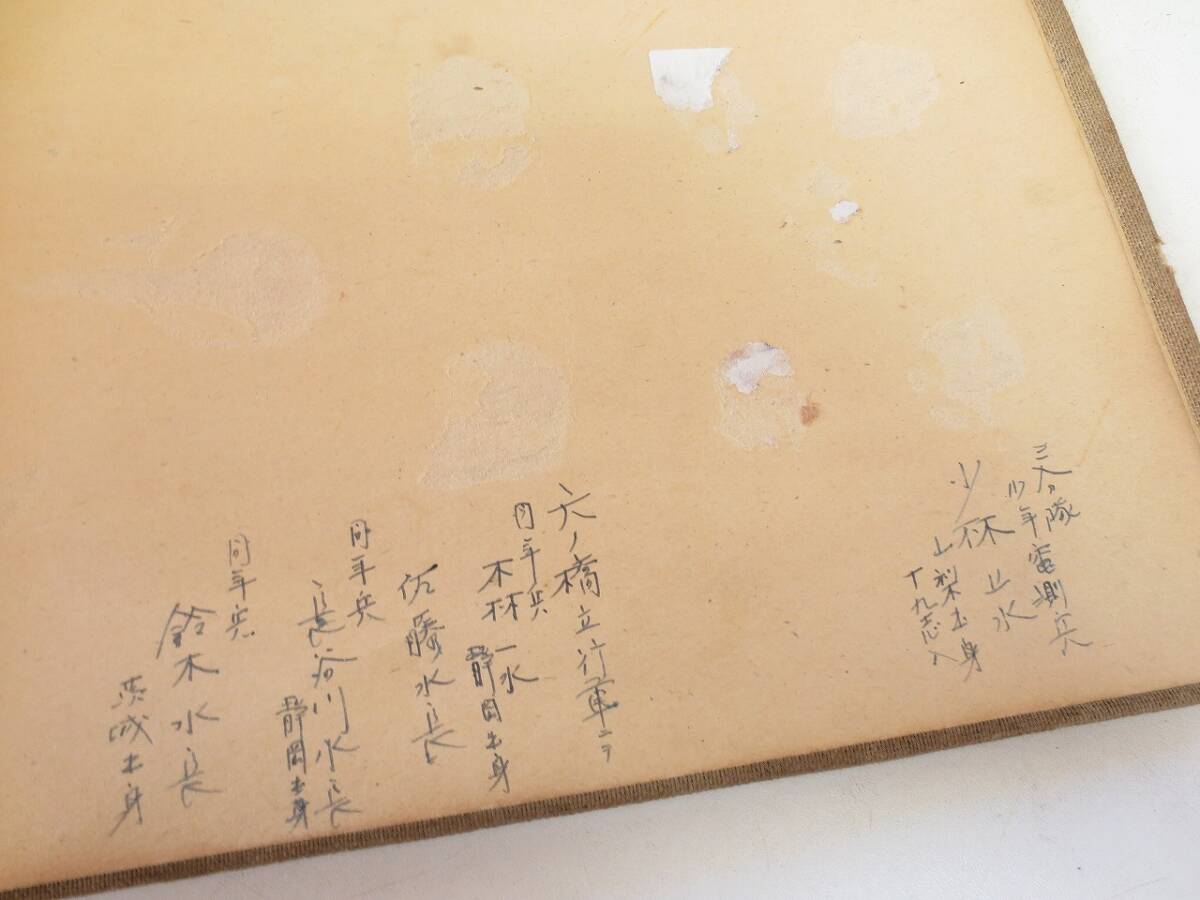 三分隊
少年電測兵
小林上水
山梨出身
十九志入
六ノ橋立行軍ニテ
同年兵
林一水
静岡出身
佐藤水長
同年兵
長谷川水長
静岡出身
同年兵
鈴木水長
茨城出身